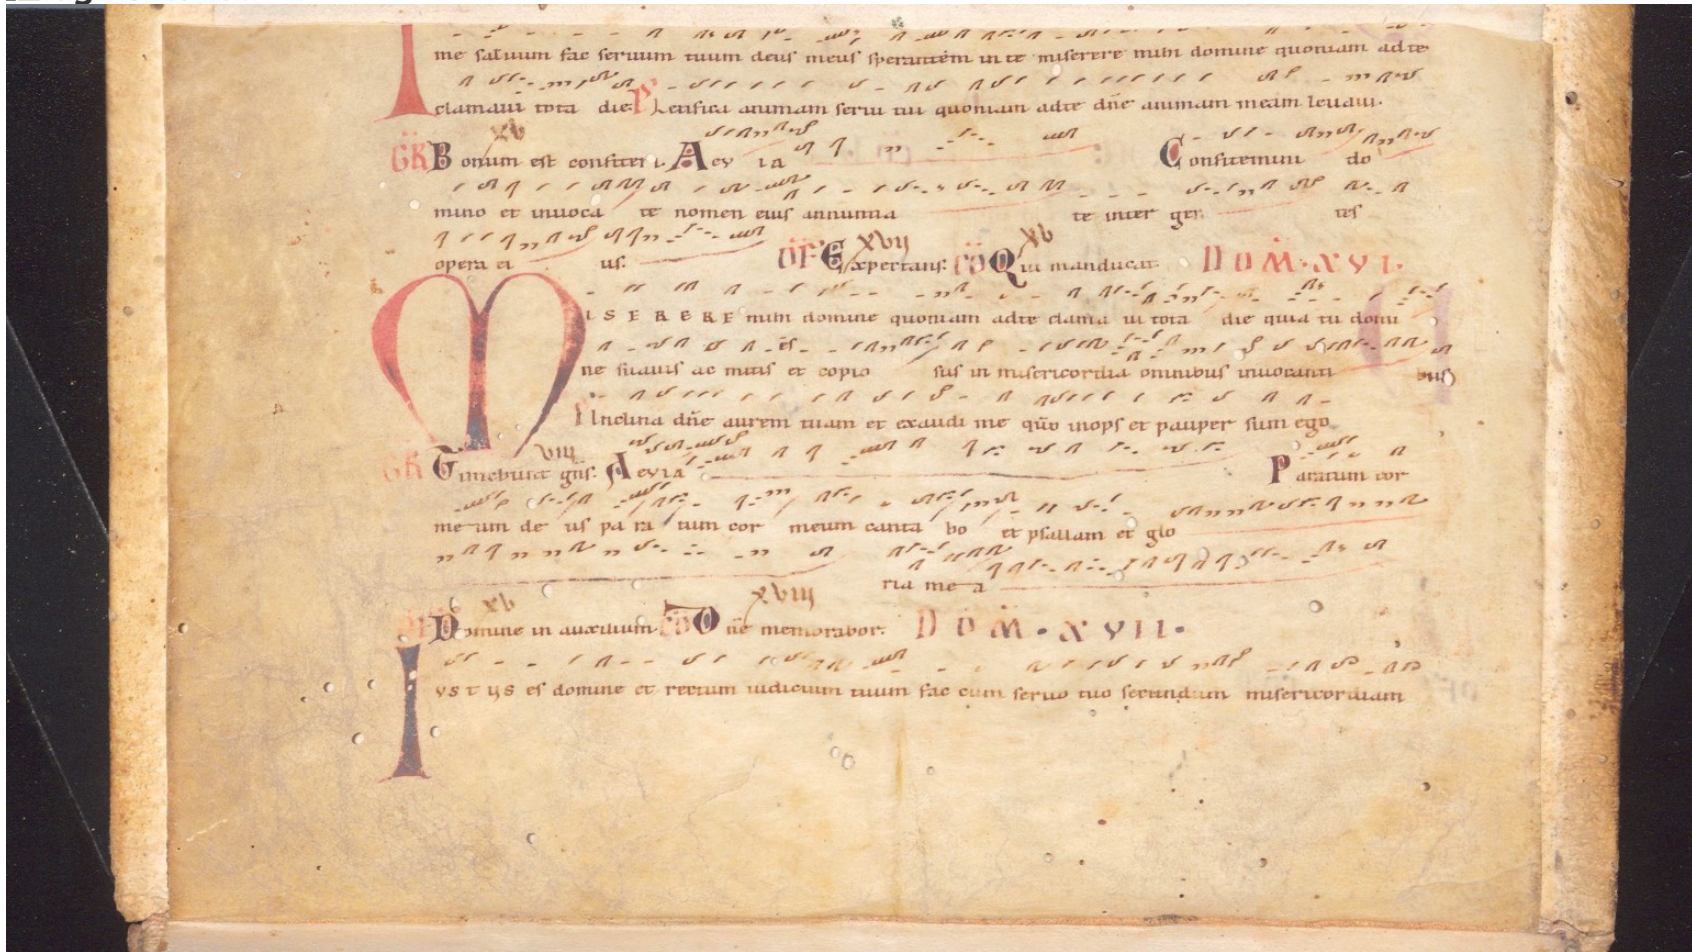 me saluum fac seruum tuum deus meus sperantem in te miserere mihi domine quoniam ad te
clamaui tota die. Ps Letifica animam serui tui quoniam ad te dñe animam meam leuaui.
GR Bonum est confiteri. xv Aevia Confitemini do
mino et inuoca te nomen eius annuntia te inter gen tes
opera ei us. OF Expectans. xvij CO Qui manducat. xv DOM. XVI.
MISERERE mihi domine quoniam ad te clama ui tota die quia tu domi
ne suauis ac mitis et copio sus in misericordia omnibus inuocanti bus
Ps Inclina dñe aurem tuam et exaudi me qūo inops et pauper sum ego
GR Timebunt gñs. viij Aevia Paratum cor
me um de us pa ra tum cor meum canta bo et psallam et glo
ria me a
OF Domine in auxilium. xv CO Dñe memorabor. xviij DOM. XVII.
IVSTVS es domine et rectum iudicium tuum fac cum seruo tuo secundum misericordiam